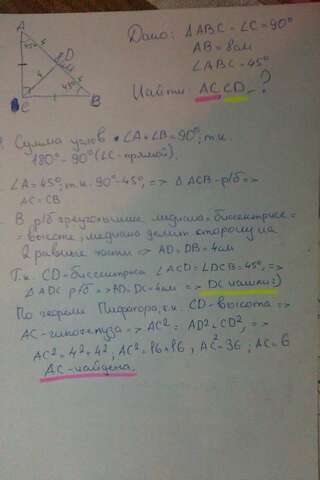 A
45°
4
D
4
4
45°
C
B
Дано: △ABC - ∠C = 90°
AB = 8см
∠ABC - 45°
Найти AC CD - ?
Сумма углов ∠A + ∠B = 90°, т.к.
180° - 90° (∠C - прямой).
∠A = 45°, т.к. 90° - 45°, => △ ACB - р/б =>
AC = CB
В р/б треугольнике медиана = биссектрисе =
= высоте, медиана делит сторону на
2 равные части => AD = DB = 4см
Т.к. CD - биссектриса ∠ACD = ∠DCB = 45°, =>
△ ADC р/б => AD = DC = 4см => DC нашли :)
По теореме Пифагора, т.к. CD - высота =>
AC - гипотенуза => AC² = AD² + CD², =>
AC² = 4² + 4², AC² = 16 + 16, AC² = 36; AC = 6
AC - найдена.